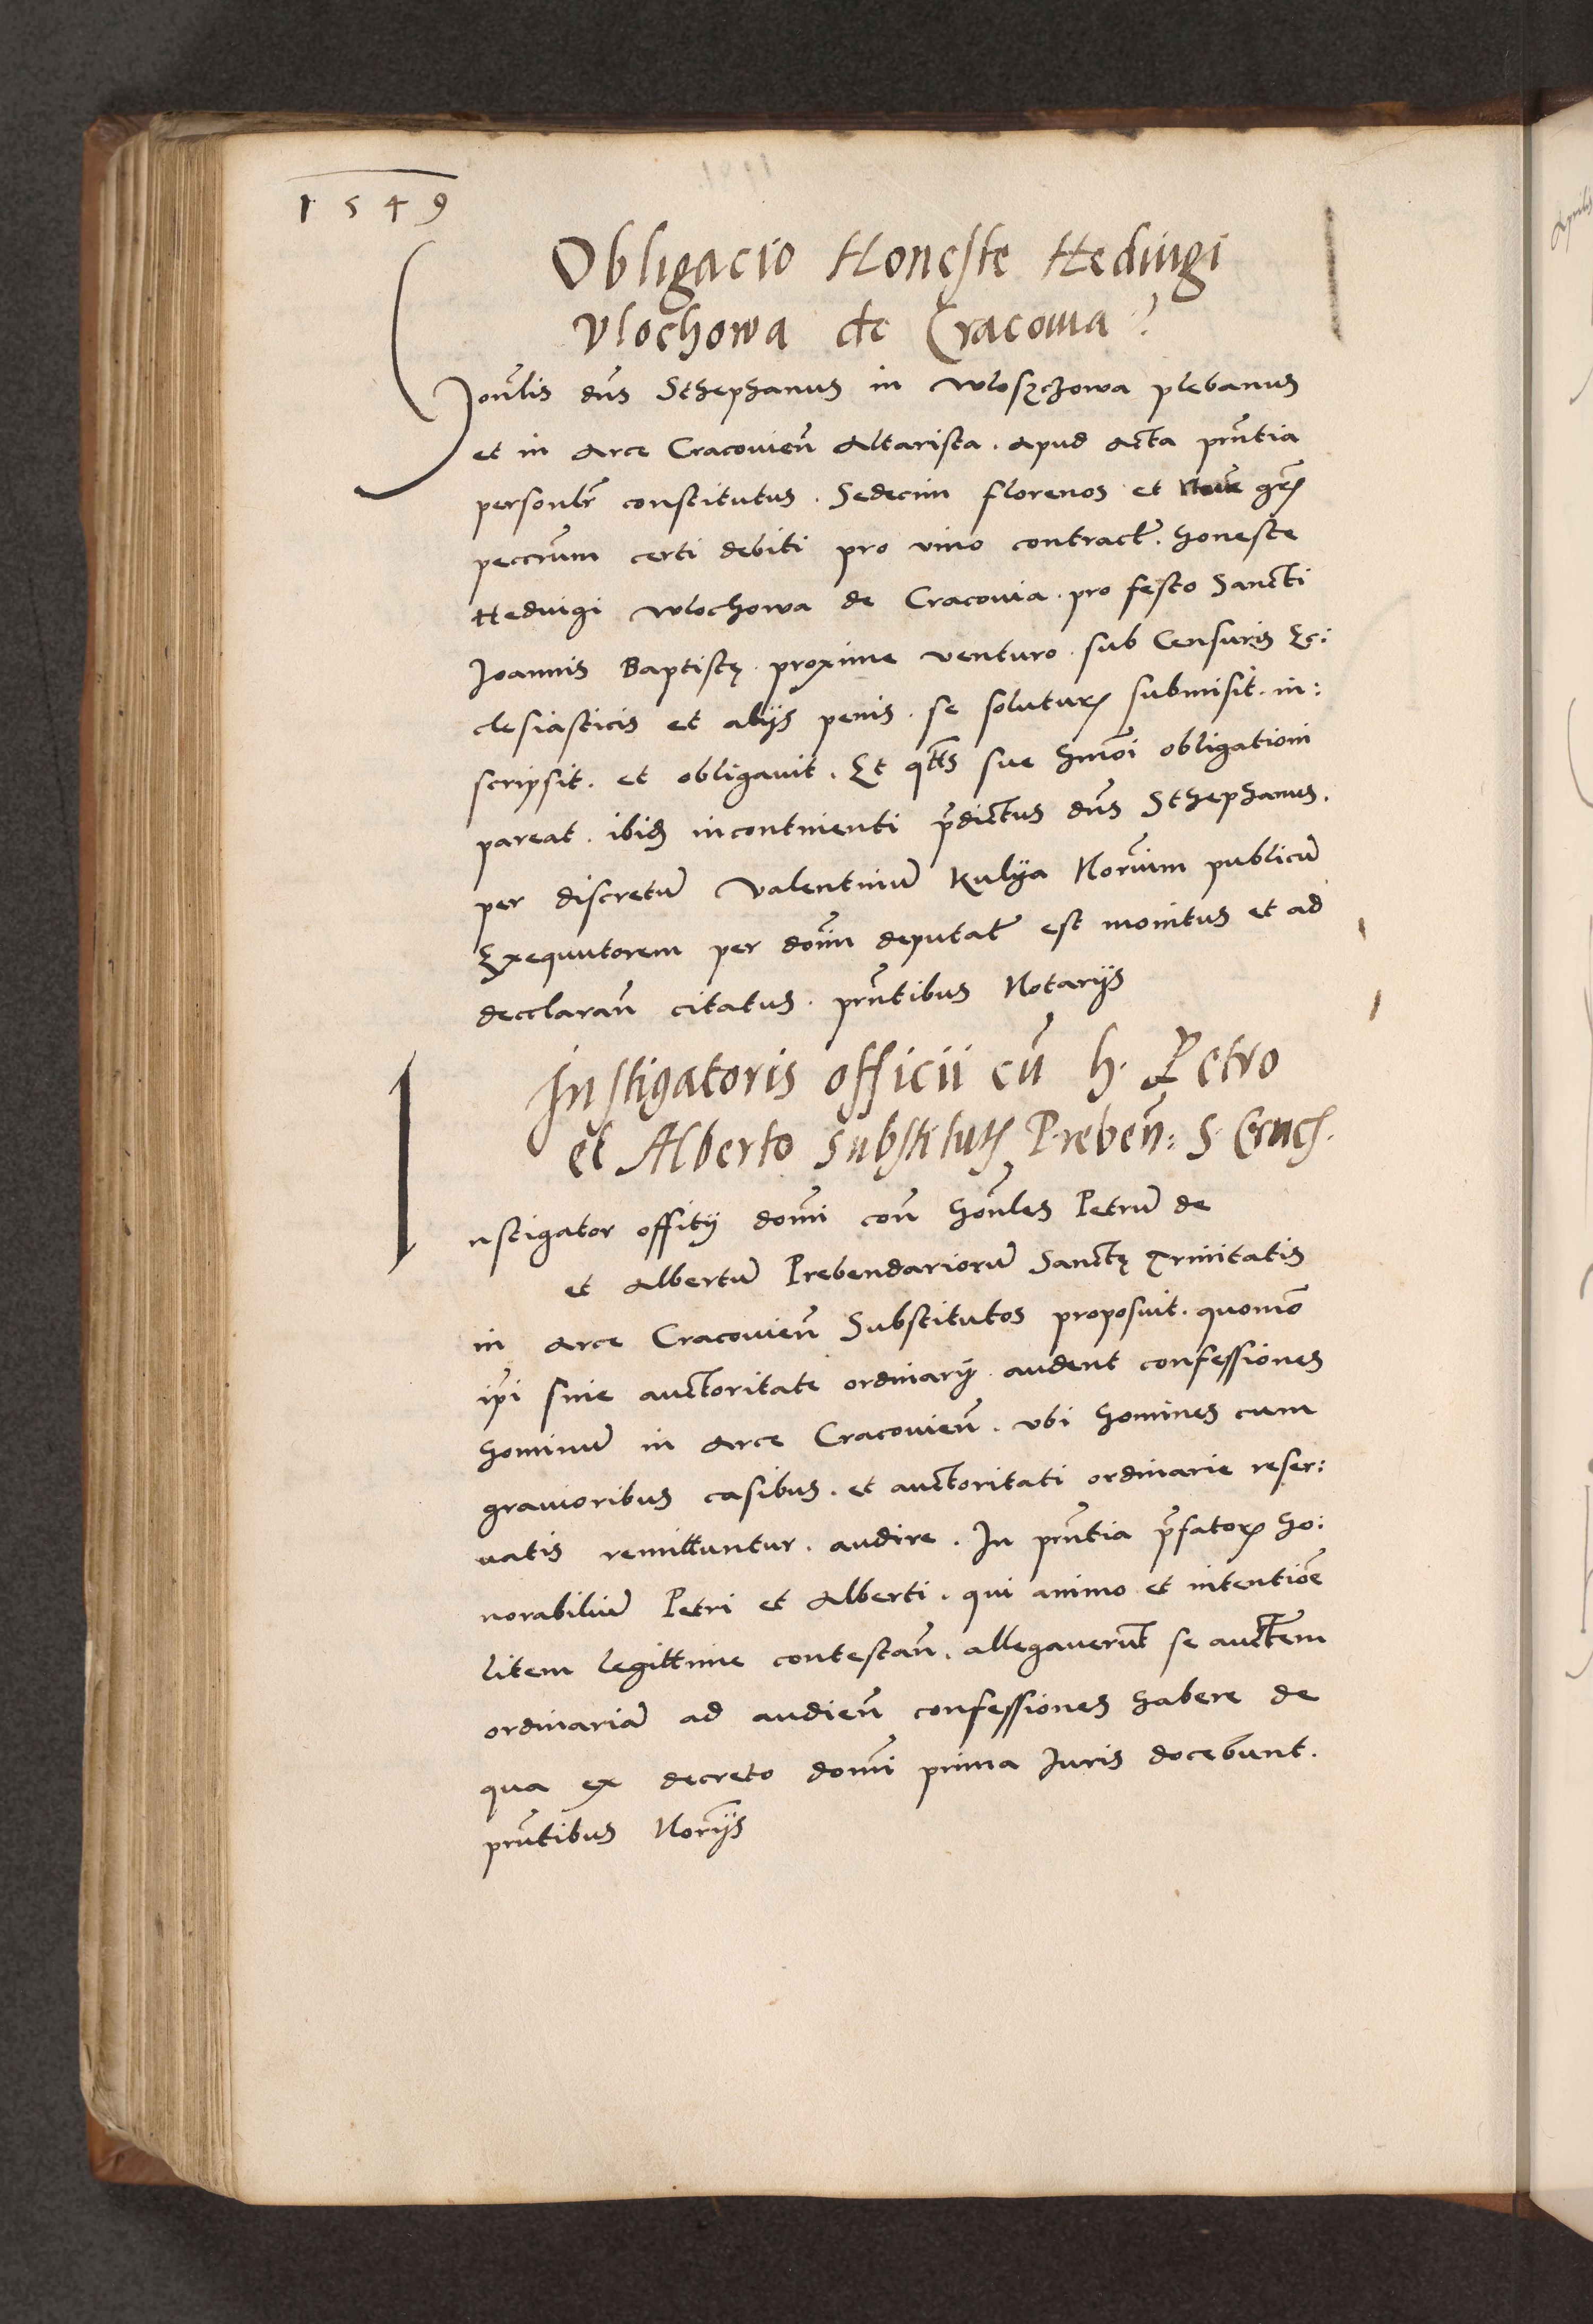 1549
Obligacio Honeste Hedvigi
Vlochowa de Cracovia
Honᷝlis dn̄s Sthephanus in Wloszchowa plebanus
et in Arce Cracovien̄ Altarista . apud Acta pn̄tia
personlr̄ constitutus . Sedecim florenos et
peccūm certi debiti pro vino contract̄ . honeste
Hedvigi Wlochowa de Cracovia . pro festo Sancti
Joannis Baptistę . proxime venturo . sub Censuris Ec:
clesiasticis et alijs penis . se soluturꝝ submisit . in:
scripsit . et obligavit . Et qtt̄s sue hmōi obligationi
pareat . ibid incontinenti p̄dictus dn̄s Sthephanus .
per discretū Valentinū Kulya Nor̄ium publicū
Exequutorem per dōm deputat̄ est monitus et ad
decclaran̄ citatus . pn̄tibus Notarijs
Instigatoris officii cū h. Petro
et Alberto substitutꝭ Preben̄: S. Crucꝭ.
Instigator offitij domī con̄ hon̄les Petrū de
et Albertū Prebendariorū Sanctę Trinitatis
in Arce Cracovien̄ Substitutos proposuit . quomō
ip̄i sine auctoritate ordinarij . audent confessiones
hominū in Arce Cracovien̄ . ubi homines cum
gravioribus casibus . et auctoritati ordinarie reser:
vatis remittuntur . audire . In pn̄tia p̄fatorꝝ ho:
norabiliū Petri et Alberti . qui animo et intentiōe
litem legittime contestan̄ . allegaverūt se auctt̄em
ordinariā ad audien̄ confessiones habere de
qua ex decreto domī prima Juris docebunt .
pn̄tibus Nor̄ijs